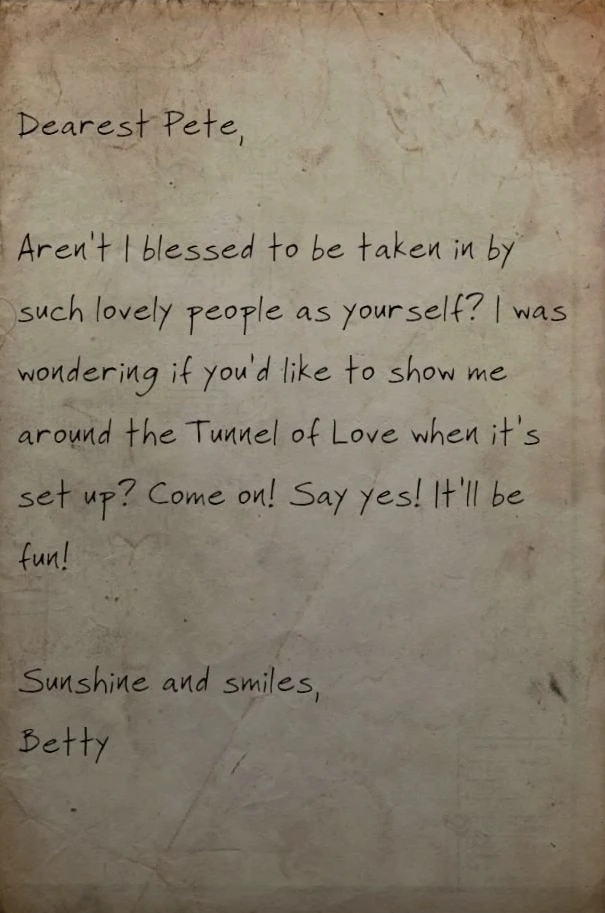 Dearest Pete,
Aren't I blessed to be taken in by
such lovely people as yourself? I was
wondering if you'd like to show me
around the Tunnel of Love when it's
set up? Come on! Say yes! It'll be
fun!
Sunshine and smiles,
Betty